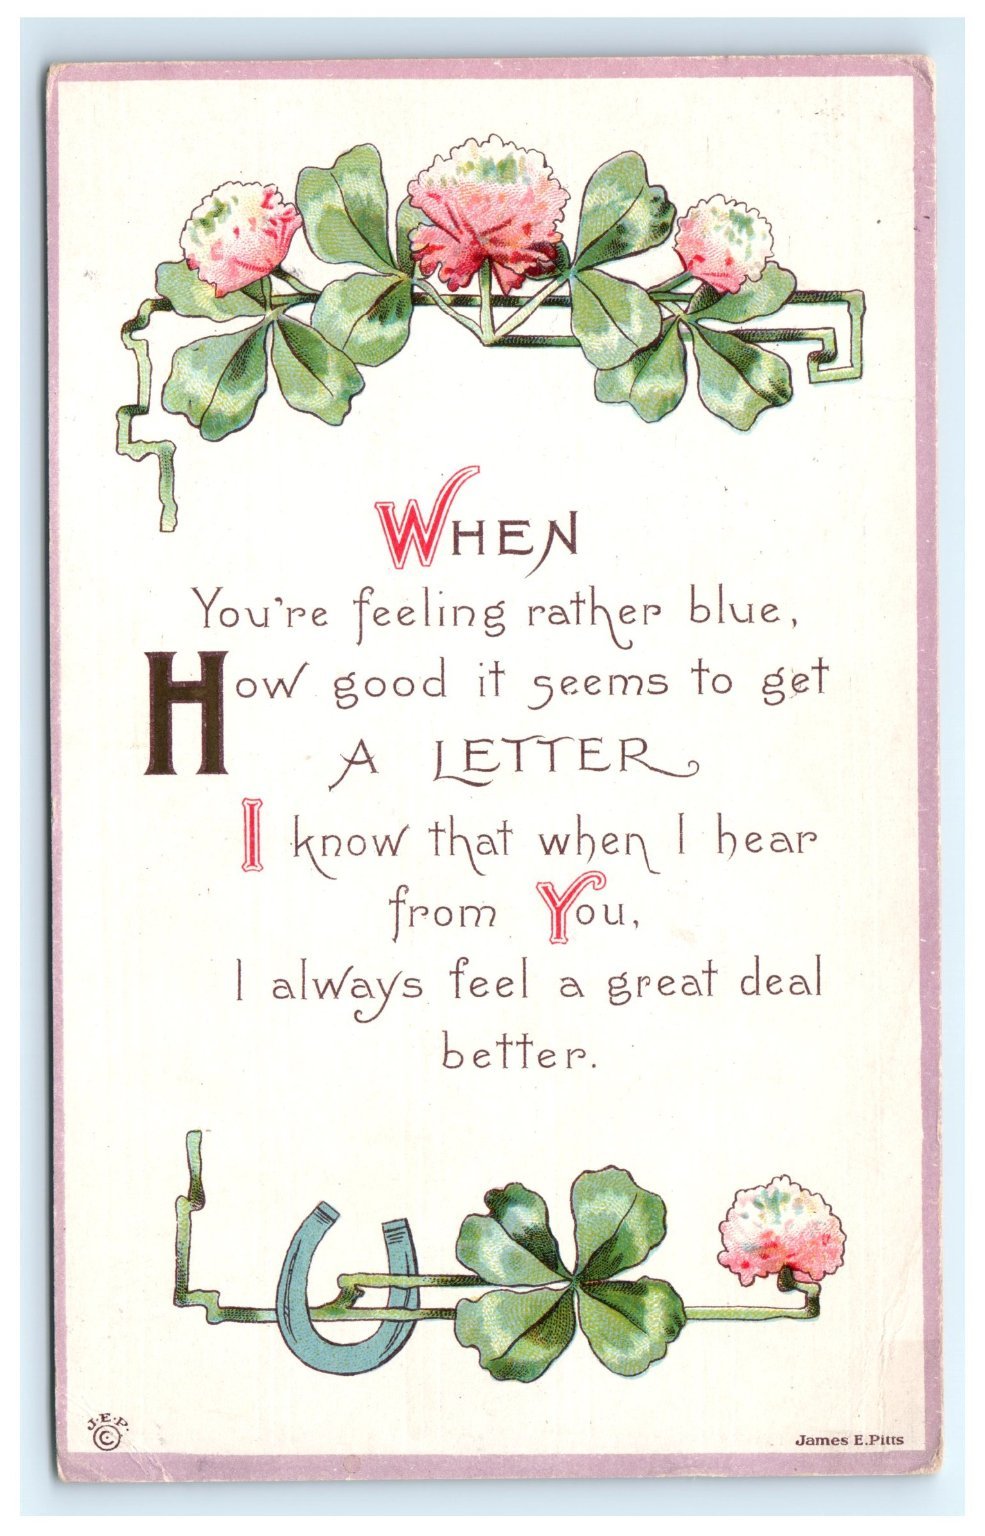 WHEN
You're feeling rather blue,
How good it seems to get
A LETTER
I know that when I hear
from You,
I always feel a great deal
better.
J.E.P.
©
James E. Pitts